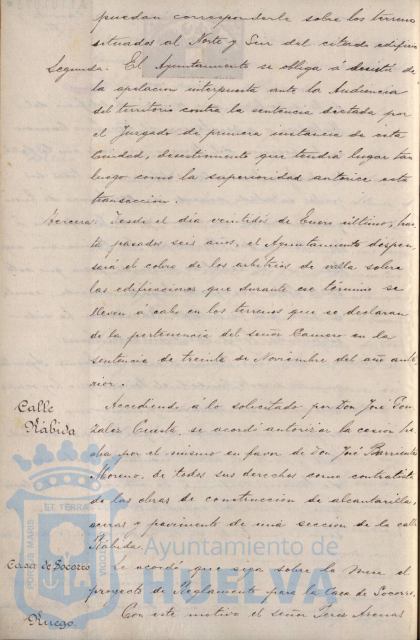 puedan corresponderle sobre los terrenos
situados al Norte y Sur del citado edificio
Segunda. El Ayuntamiento se obliga á desistir de
la apelacion interpuesta ante la Audiencia
del territorio contra la sentencia dictada por
el Juzgado de primera instancia de esta
Ciudad, desistimiento que tendrá lugar tan
luego como la superioridad autorice esta
transaccion.
Tercera. Desde el dia veintidos de Enero último, has-
ta pasados seis años, el Ayuntamiento dispen-
sará el cobro de los arbitrios de villa sobre
las edificaciones que durante ese término se
lleven á cabo en los terrenos que se declaran
de la pertenencia del señor Camero en la
sentencia de treinta de Noviembre del año ante-
rior.
Calle
Rábida
Accediendo á lo solicitado por Don José Gon-
zalez Cuesta, se acordó autorizar la cesion he-
cha por el mismo en favor de Don José Barrientos
Moreno, de todos sus derechos como contratista
de las obras de construccion de alcantarilla,
aceras y pavimento de una seccion de la calle
Rábida.
Casa de Socorro
Se acordó que siga sobre la mesa el
proyecto de Reglamento para la Casa de Socorro.
Ruego.
Con este motivo el señor Teres Arenas
PORTUS MARIS
ET TERRAE
CUSTODIA
Ayuntamiento de
HUELVA